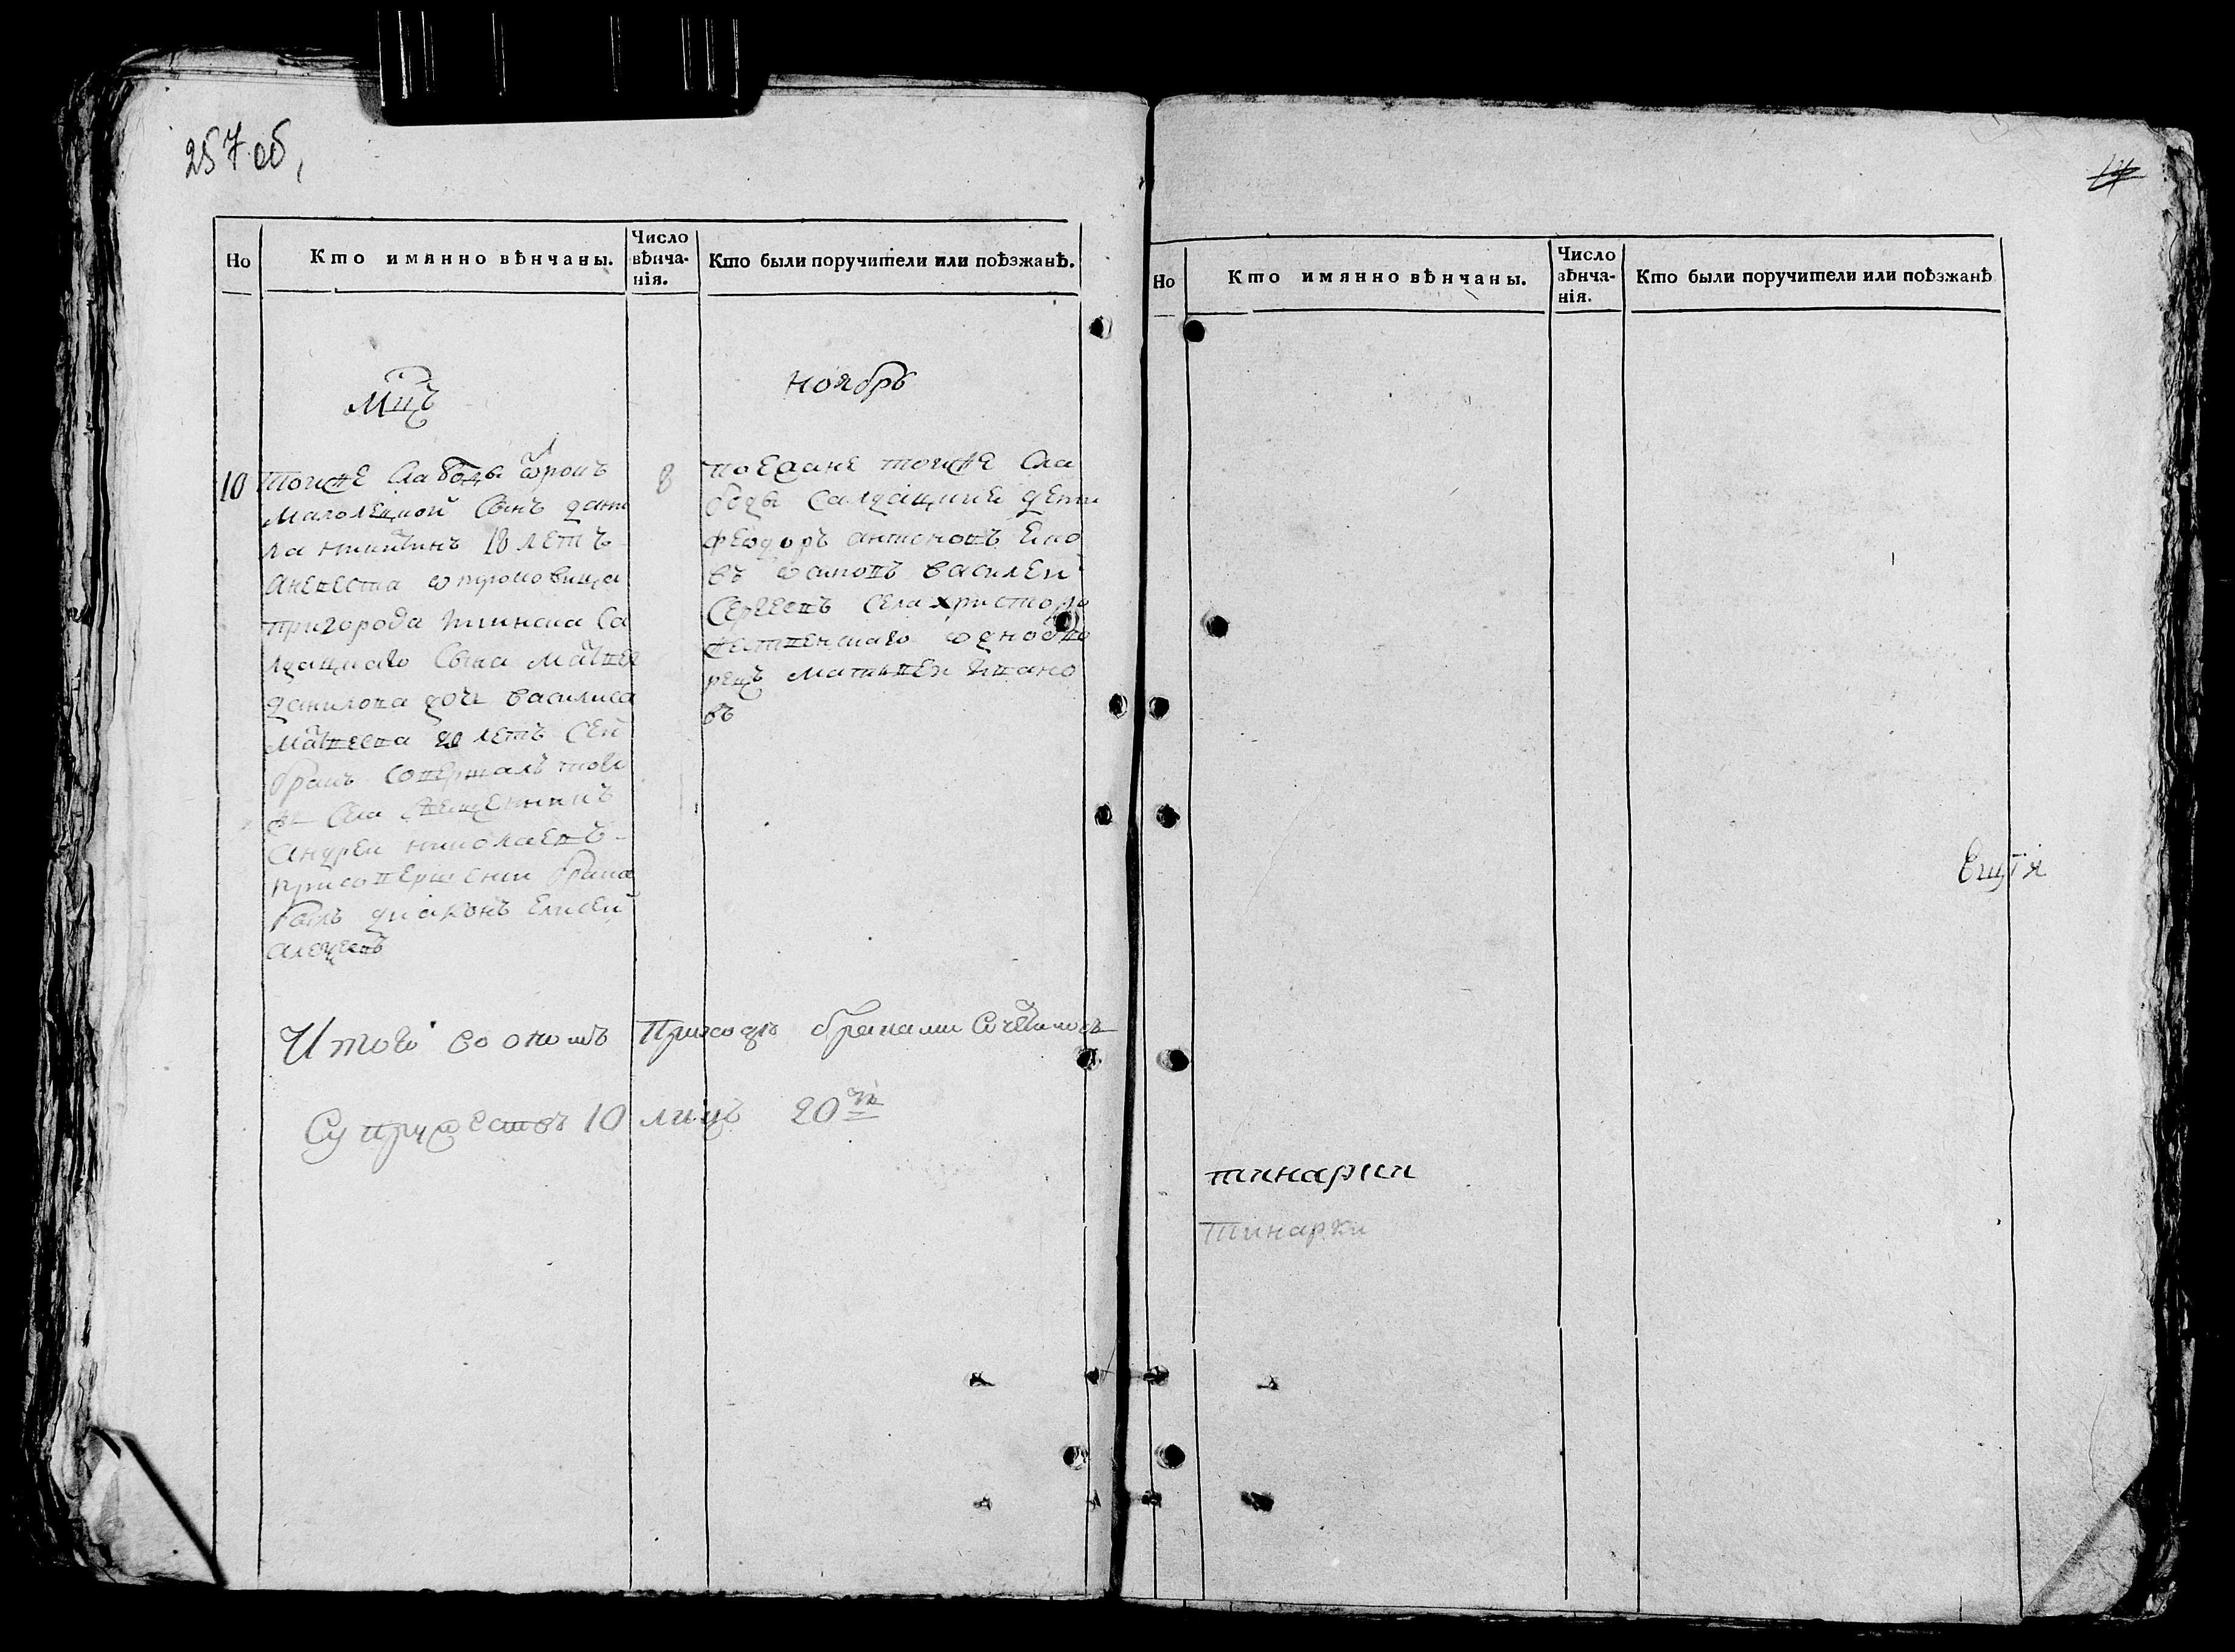 257 об,
Но
Кто имянно вѣнчаны.
Число вѣнча-
нія.
Кто были поручители или поѣзжанѣ.
Мцъ
ноябрь
10
тоиже слабоды отрокъ
малолецкой сынъ дани
ла никитинъ 18 летъ
аневеста отроковица
пригорода тиинска са
лдацкаго сына матвея
данилова дочь василиса
матвеева 20 летъ сей
бракъ совершалъ тое
же сла священникъ
андреи николаевъ
присовершении брака
былъ диаконъ елисей
8
поеждане тоиже сла
боды салдацкие дети
феодоръ антоновъ
василеи
сергеевъ села христоро
ждественскаго однодво
рецъ матвеи ивано
въ
Итого во ономъ приходе браками
супружествъ 10 лицъ 20ть
Но
Кто имянно вѣнчаны.
Число
вѣнча-
нія.
Кто были поручители или поѣзжанѣ
тинарки
тинарки